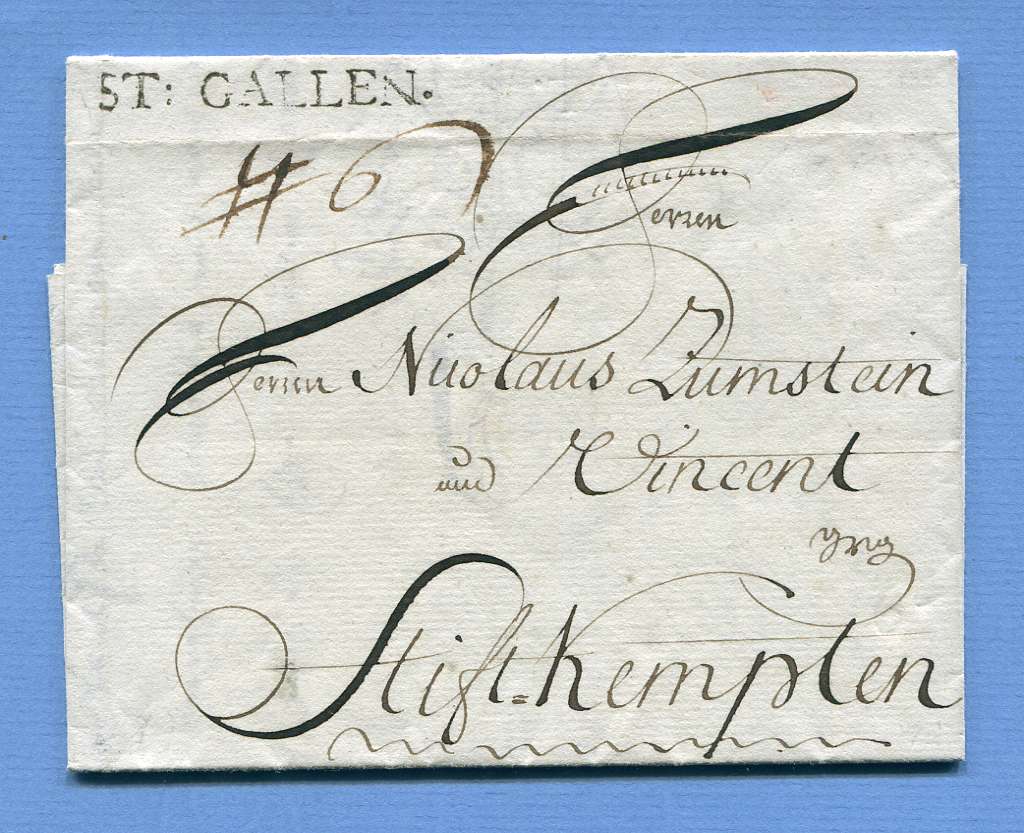 ST: GALLEN.
# 6
Herren
Herren Nicolaus Zumstein
und Vincent
Stift=Kempten